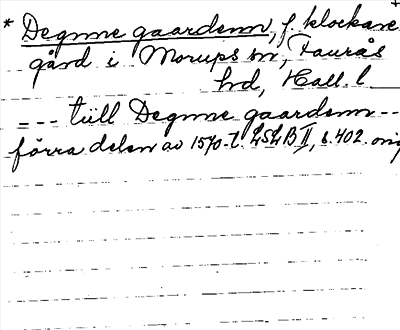 * Degnne gaardenn, f. klockare
gård i Morups sn, Faurås
hd, Hall. l
--- tiill Degnne gaardenn --
förra delen av 1570-t. LSLB II, s. 402. orig